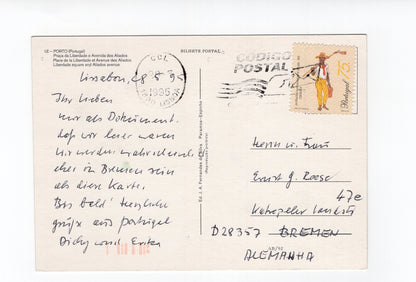 18 - PORTO (Portugal)
Praça da Liberdade e Avenida dos Aliados
Place de la Liberdade et Avenue des Aliados
Liberdade square and Aliados avenue
BILHETE POSTAL
Lissabon, 28.8.95
Ihr Lieben
nur als Dokument.
daß wir hier waren
wir werden wahrscheinlich
eher in Bremen sein
als diese Karte.
Bis bald! Herzliche
grüße aus Portugal
Dicky und
CCL
1995
CÓDIGO
POSTAL
75.
Portugal
Herrn u. Frau
Ernst G.
47e
D28357 BREMEN
ALEMANHA